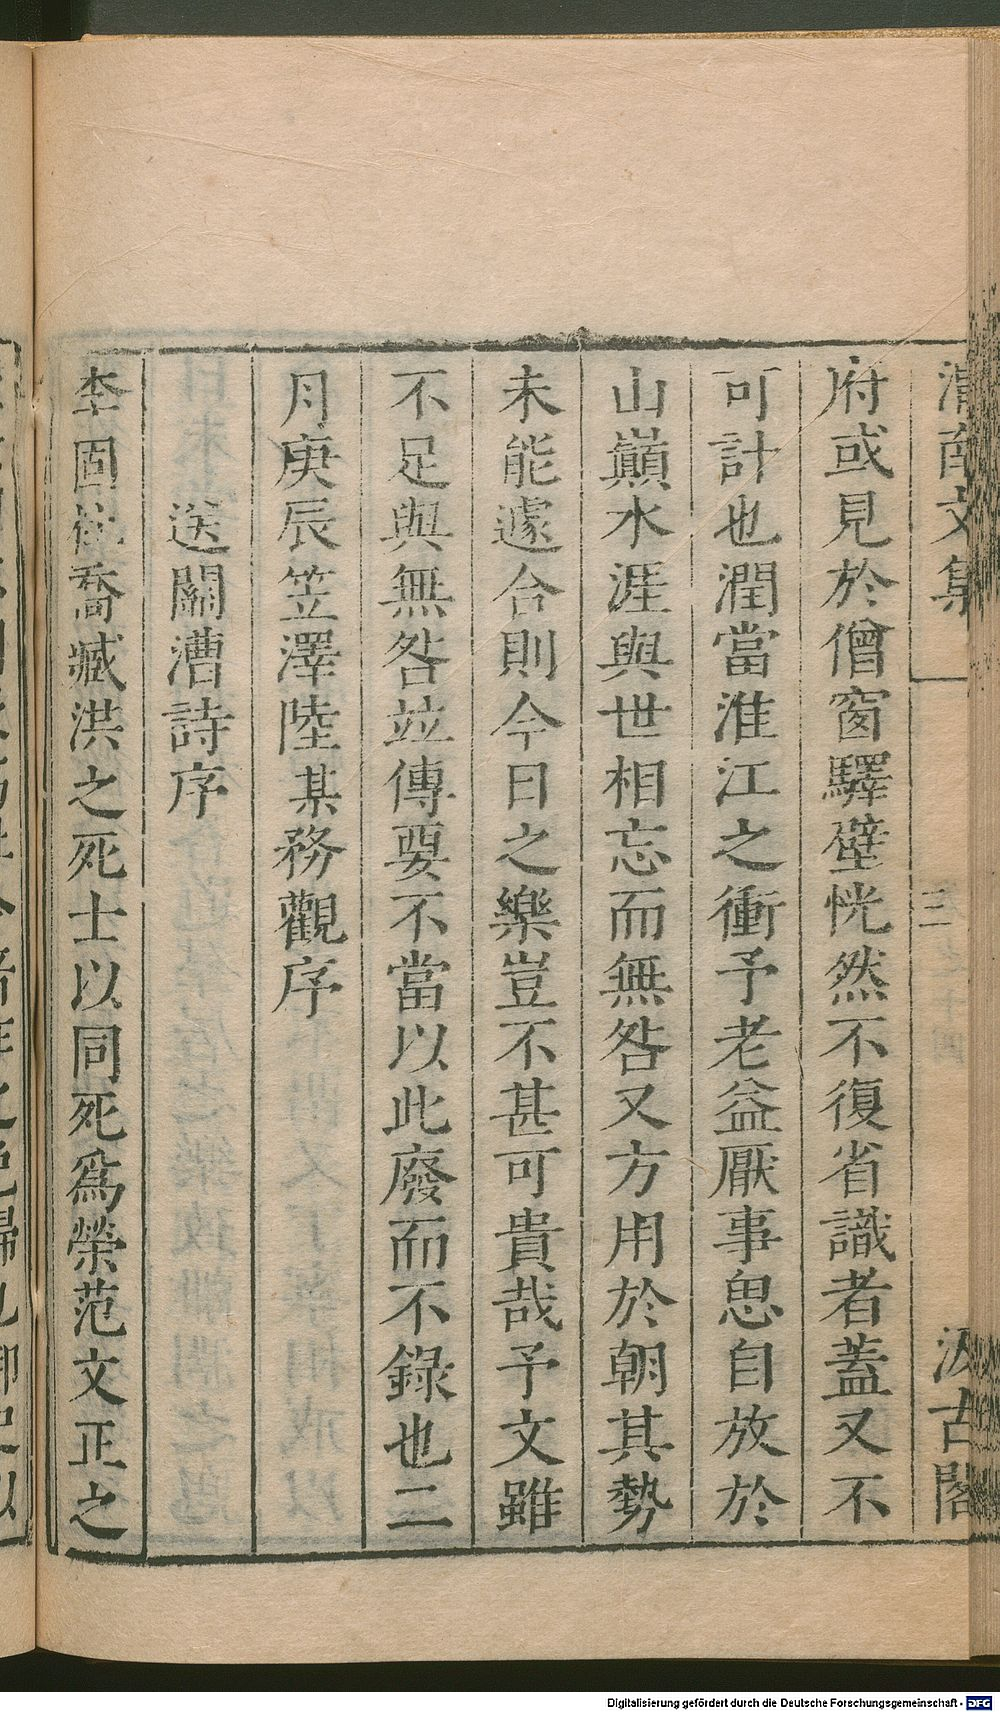 渭南文集
三
汲古閣
府或見於僧窗驛壁恍然不復省識者蓋又不
可計也潤當淮江之衝予老益厭事思自放於
山巔水涯與世相忘而無咎又方用於朝其勢
未能遽合則今日之樂豈不甚可貴哉予文雖
不足與無咎並傳要不當以此廢而不錄也二
月庚辰笠澤陸某務觀序
送關漕詩序
李固杜喬臧洪之死士以同死爲榮范文正之
Digitalisierung gefördert durch die Deutsche Forschungsgemeinschaft - DFG